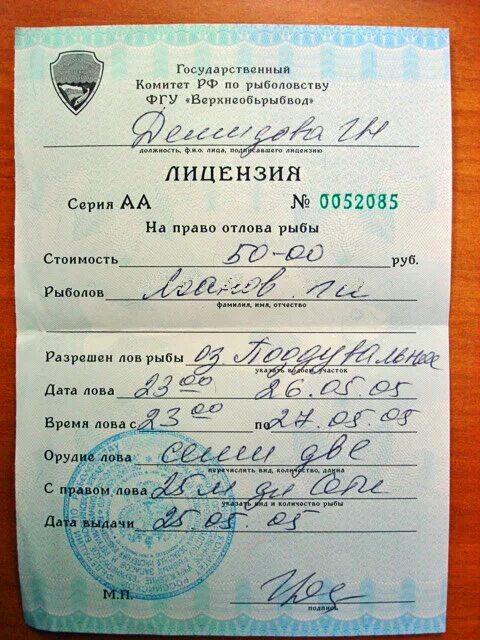 Государственный
Комитет РФ по рыболовству
ФГУ «Верхнеобьрыбвод»
Демидова ГН
должность, ф.и.о. лица, подписавшего лицензию
ЛИЦЕНЗИЯ
Серия АА № 0052085
На право отлова рыбы
Стоимость 50-00 руб.
Рыболов
фамилия, имя, отчество
Разрешен лов рыбы оз Поддувальное
указать водоем, участок
Дата лова 23 00 26.05.05
Время лова с 23 00 по 27.05.05
Орудие лова сети две
перечислить вид, количество, длина
С правом лова 25 м дл
указать вид и количество рыбы
Дата выдачи 25.05.05
М.П.
подпись